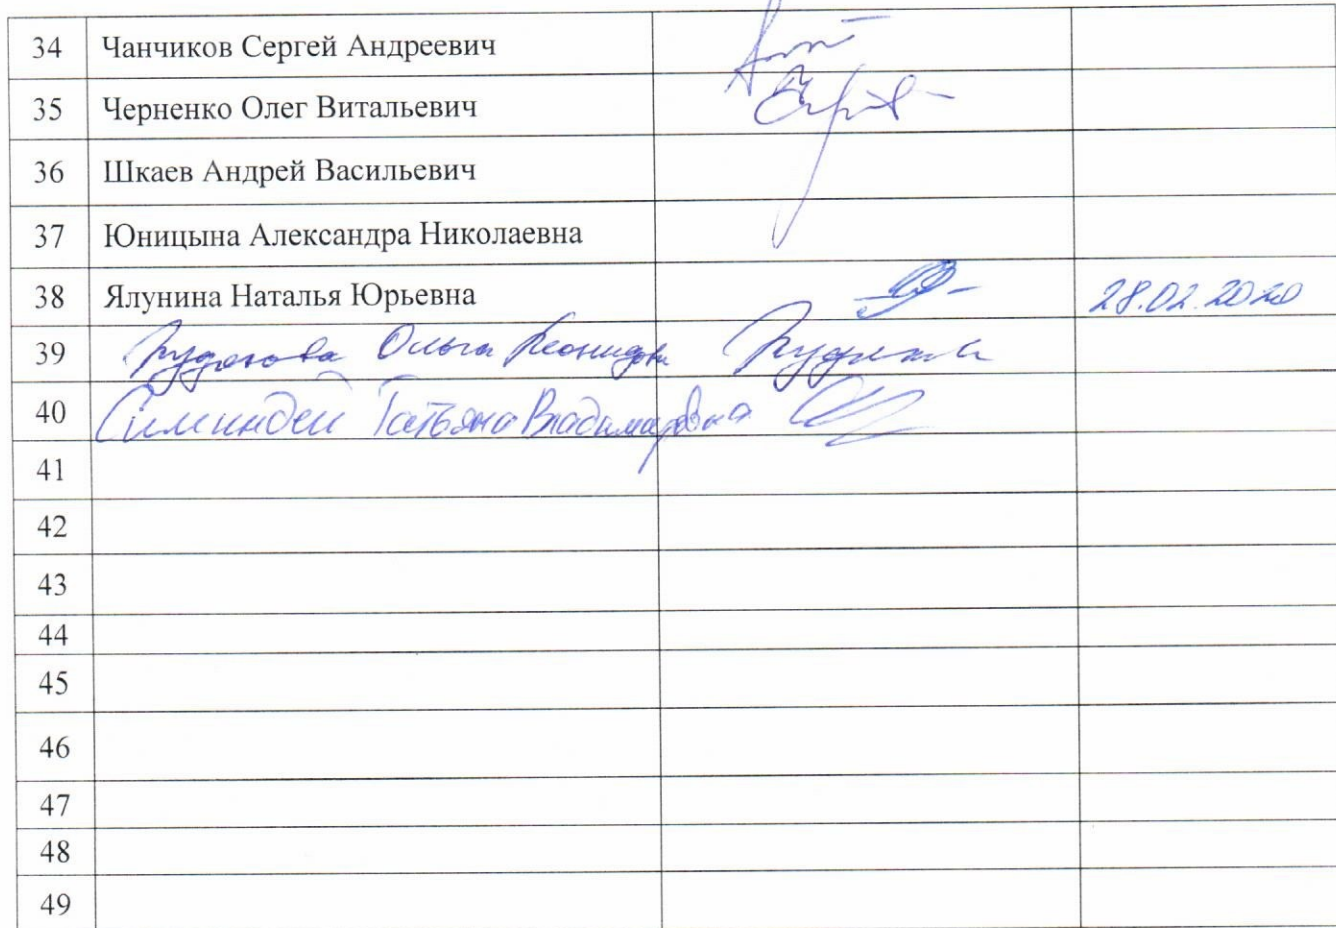 34 Чанчиков Сергей Андреевич
35 Черненко Олег Витальевич
36 Шкаев Андрей Васильевич
37 Юницына Александра Николаевна
38 Ялунина Наталья Юрьевна 28.02.2020
39 Ольга
40 Татьяна Владимировна
41
42
43
44
45
46
47
48
49